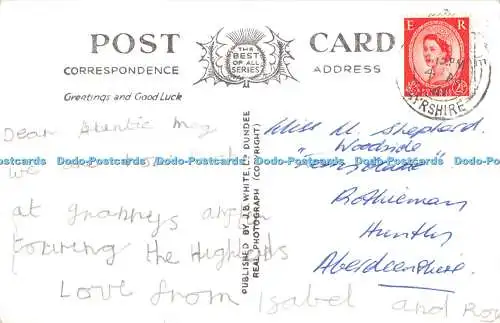 POST CARD
THE
BEST
OF ALL
SERIES
CORRESPONDENCE
ADDRESS
Greetings and Good Luck
E R
AYRSHIRE
Dear Auntie May
we are
at grannys
touring the Highlands
Love from Isabel and Roy
PUBLISHED BY J.B. WHITE, LD DUNDEE
REAL PHOTOGRAPH (COPYRIGHT)
Miss M. Shepherd,
"Woodside
Rothiemay
Huntly
Aberdeenshire.
Docks-Postcards Dodo-Postcards Dodo-Postcards Dodo-Postcards Dodo-Postcards Dodo-Postcards